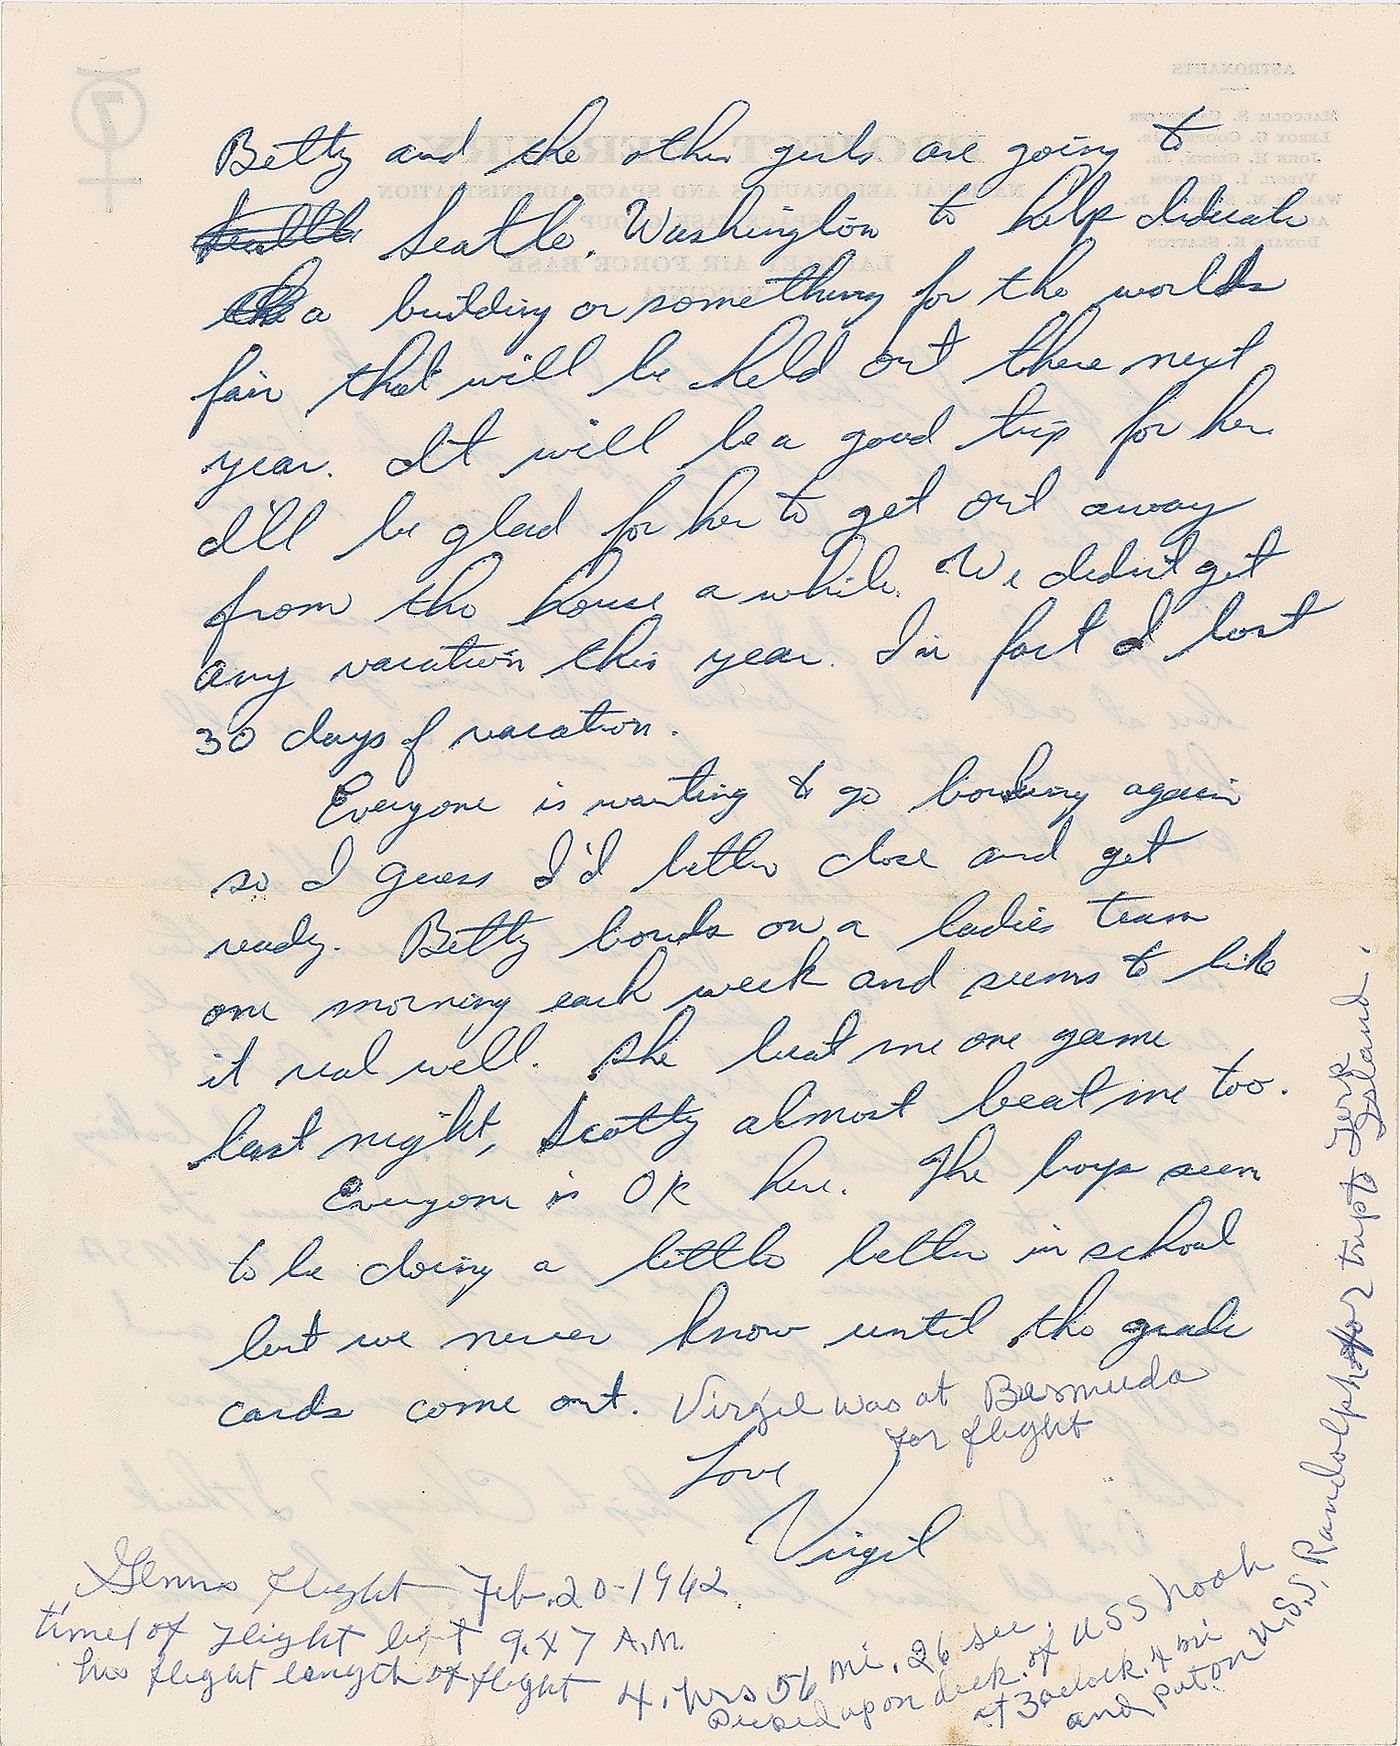 Betty and the other girls are going to
Seattle, Washington to help didicate
a building or something for the worlds
fair that will be held out there next
year. It will be a good trip for her
I'll be glad for her to get out away
from the house a while. We didn't get
any vacation this year. In fact I lost
30 days of vacation.
Everyone is wanting to go bowling again
so I guess I'd better close and get
ready. Betty bowls on a ladies team
one morning each week and seems to like
it real well. She beat me one game
last night, Scotty almost beat me too.
Everyone is OK here. The boys seem
to be doing a little better in school
but we never know until the grade
cards come out. Virgil was at Bermuda
for flight
Love
Virgil
Glenns flight Feb. 20-1962
time of flight left 9.47 A.M.
his flight length of flight 4, hrs 56 mi. 26 sec.
upon deck of USS Noah
at 3 oclock. 4 mi
and put on U.S.S. Randolph for trip to Terk
Island.
ASTRONAUTS
MALCOLM S. CARPENTER
LEROY G. COOPER, JR.
JOHN H. GLENN, JR.
VIRGIL I. GRISSOM
WALTER M. SCHIRRA, JR.
DONALD K. SLAYTON
PROJECT MERCURY
NATIONAL AERONAUTICS AND SPACE ADMINISTRATION
SPACE TASK GROUP
LANGLEY AIR FORCE BASE
VIRGINIA